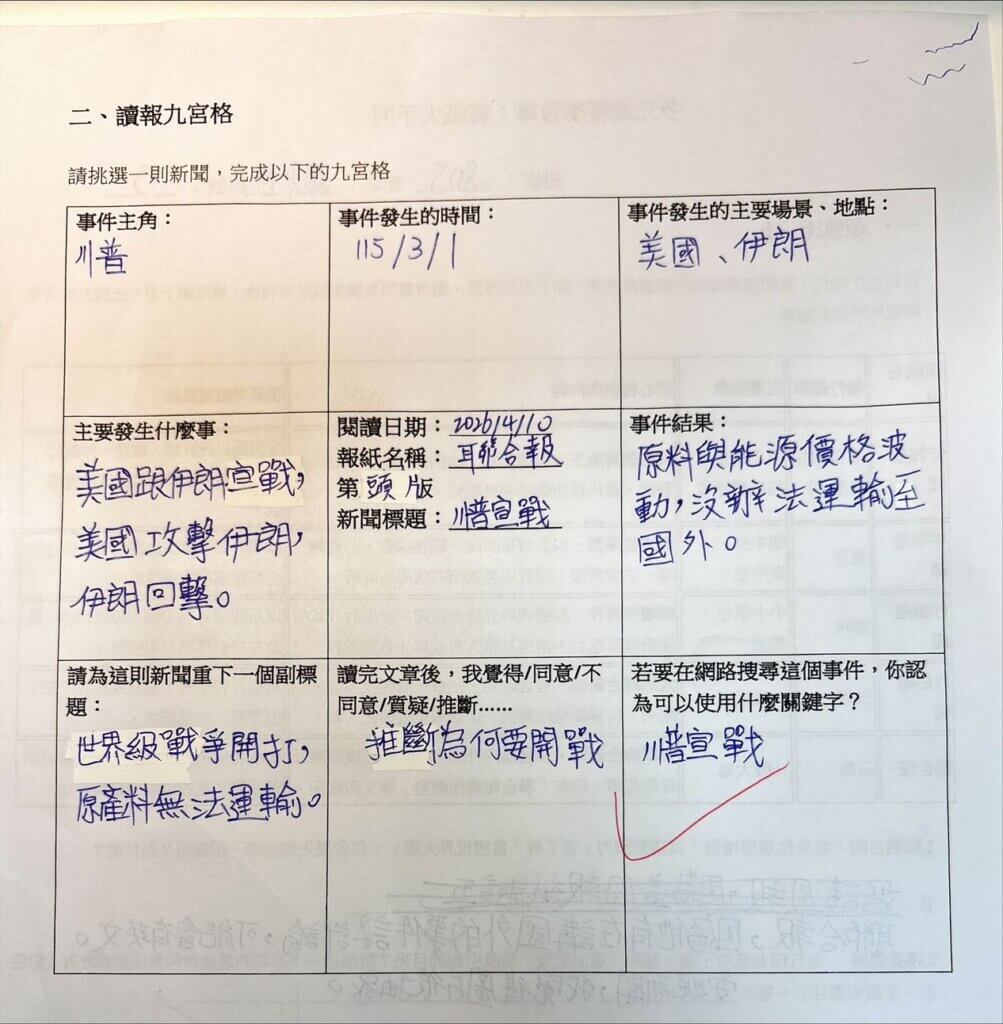 二、讀報九宮格
請挑選一則新聞，完成以下的九宮格
事件主角：
川普
事件發生的時間：
115/3/1
事件發生的主要場景、地點：
美國、伊朗
主要發生什麼事：
美國跟伊朗宣戰，
美國攻擊伊朗，
伊朗回擊。
閱讀日期：2026/4/10
報紙名稱：聯合報
第 頭 版
新聞標題：川普宣戰
事件結果：
原料與能源價格波
動，沒辦法運輸至
國外。
請為這則新聞重下一個副標
題：
世界級戰爭開打，
原產料無法運輸。
讀完文章後，我覺得/同意/不
同意/質疑/推斷......
推斷為何要開戰
若要在網路搜尋這個事件，你認
為可以使用什麼關鍵字？
川普宣戰